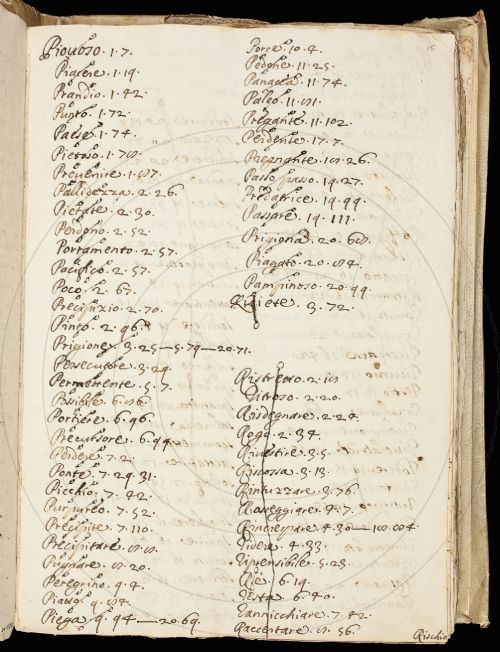 Piouoso. 1. 7.
Piacere. 1. 19.
Prandio. 1. 42.
Punto. 1. 72.
Paese. 1. 74.
Pietoso. 1. 78.
Preuenire. 1. 87.
Pallidezza. 2. 26.
Pietate. 2. 30.
Perdono. 2. 52.
Portamento. 2. 57.
Pacifico. 2. 57.
Poco. 2. 67.
Precipizio. 2. 70.
Pinto. 2. 96.
Prigione. 3. 25 — 5. 79 — 20. 71.
Persecutore. 3. 29.
Permettente. 5. 7.
Possibile. 6. 86.
6. 96.
Precursore. 6. 99.
Perdere. 7. 2.
Ponte. 7. 29. 31.
Picchio. 7. 42.
Purpureo. 7. 52.
Precipite. 7. 110.
Precipitare. 8. 8.
Pugnare. 8. 20.
Peregrino. 9. 4.
Piatto. 9. 84.
Piega. 9. 94 — 20. 69.
Porre. 10. 4.
11. 25.
Panacea. 11. 74.
Paleo. 11. 81.
Pregante. 11. 102.
Perdente. 17. 7.
Pregnante. 18. 26.
Passo passo. 19. 27.
Predatrice. 19. 99.
Passare. 19. 111.
Prigiona. 20. 68.
Piagato. 20. 84.
Pampinoso. 20. 99.
Quiete. 3. 72.
Ristretto. 2. 18
Ritroso. 2. 20.
Risdegnare. 2. 24.
Rogo. 2. 34.
Riuestire. 3. 5.
Riscossa. 3. 13.
Rintuzzare. 3. 76.
Rosseggiare. 4. 7.
Rincrespare. 4. 30 — 18. 84.
Ridere. 4. 33.
Riprensibile. 5. 23.
6. 19.
Resta. 6. 40.
Rannicchiare. 7. 42.
Raccertare. 8. 56.
Rischio